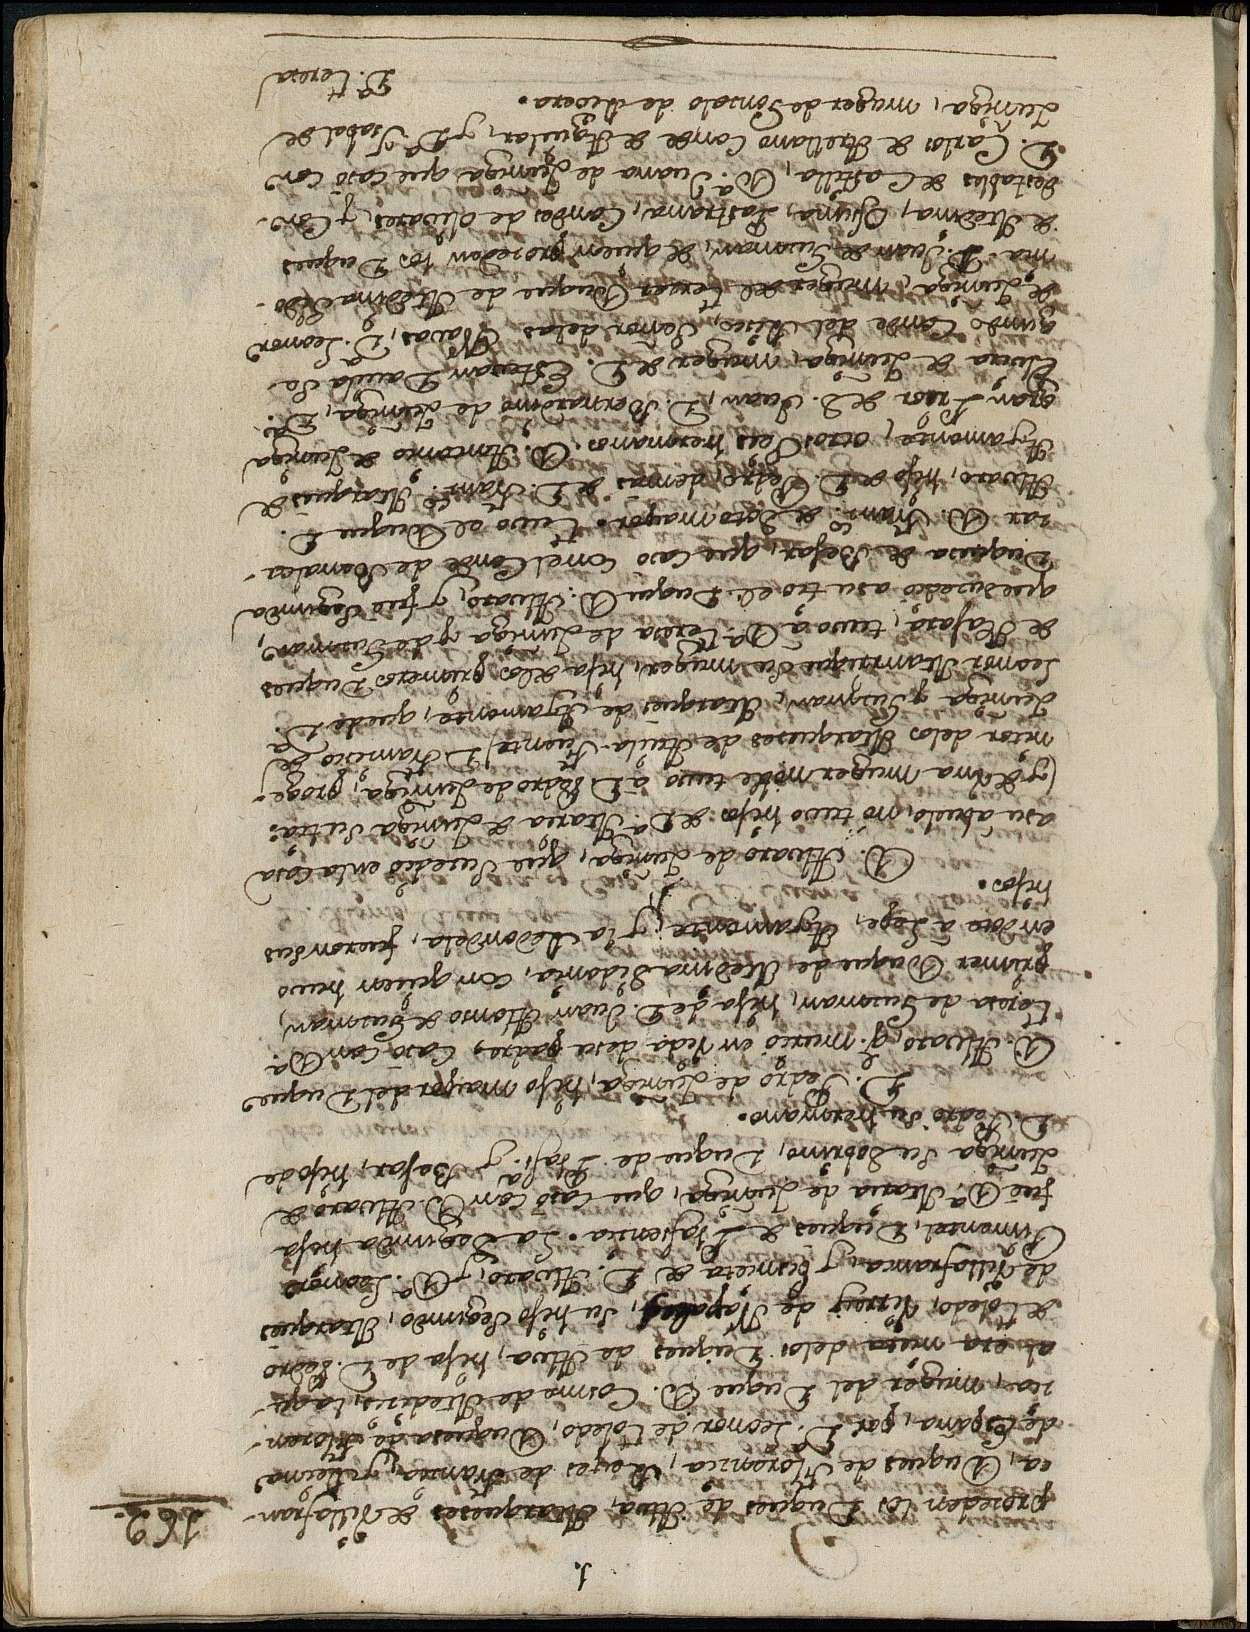 1.
162.
proseden los Duques de Alva, Marqueses de Villafran-
ca, Duques de Florencia, Reyes de Francia, y Reina
de España, por Dª. Leonor de Toledo, Duquesa de Floren-
cia, muger del Duque D. Cosme de Medicis, la qu-
al era nieta delos Duques de Alva, hija de D. Pedro
de Toledo, Virrey de Napoles, su hijo Segundo, Marques
de Villafranca, y bisnieta de D. Alvaro, y Dª. Leonor
Pimentel, Duques de Plasencia. La Segunda hija
fue Dª. Maria de Zuñiga, que casò con D. Alvaro de
Zuñiga su Sobrino, Duque de Plasª. y Bejar, hijo de
D. Pedro su hermano.
D. Pedro de Zuñiga, hijo mayor del Duque
D. Alvaro, q. murió en vida de su padre, Casó con Dª.
Teresa de Gusman, hija de D. Juan Alonso de Gusman,
primer Duque de Medina Sidonia, con quien huvo
en dote à Lepe, Ayamonte, y la Redondela, fueron sus
hijos.
D. Alvaro de Zuñiga, que Suredió en la Casa
a su abuelo, no tuvo hijos de Dª. Maria de Zuñiga su tia.
(y de una muger noble tuvo à D. Pedro de Zuñiga, proge-
nitor delos Marqueses de Avila-Fuente) D. Francisco de
Zuñiga y Gusman, Marques de Ayamonte, que de Dª.
Leonor Manrrique su muger, hija de los primeros Duques
de Najara, tuvo a Dª. Teresa de Zuñiga y de Gusman,
que suredió a su tio el Duque D. Alvaro, y fue Segunda
Duquesa de Bejar, que Caso con el Conde de Benalca-
zar D. Franco. de Sotomayor. Tuvo al Duque D.
Alvaro, hijo de D. Pedro, demas de D. Franco. Marques de
Ayamonte, otros seis hermanos. D. Antonio de Zuñiga
Gran Prior de S. Juan, D. Bernardino de Zuñiga, Dª.
Elvira de Zuñiga, muger de D. Estevan Davila Se-
gundo Conde del Risco, Señor delas Navas, Dª. Leonor
de Zuñiga, muger del tercer Duque de Medina Sido-
nia D. Juan de Gusman, de quien proseden los Duques
de Medina, Osuna, Pastrana, Condes de Olivares, y Con-
destables de Castilla, Dª. Juana de Zuñiga que casò con
D. Carlos de Arellano Conde de Aguilar, y Dª. Isabel de
Zuñiga, muger de Gonsalo de Rivera.
Dª. Teresa